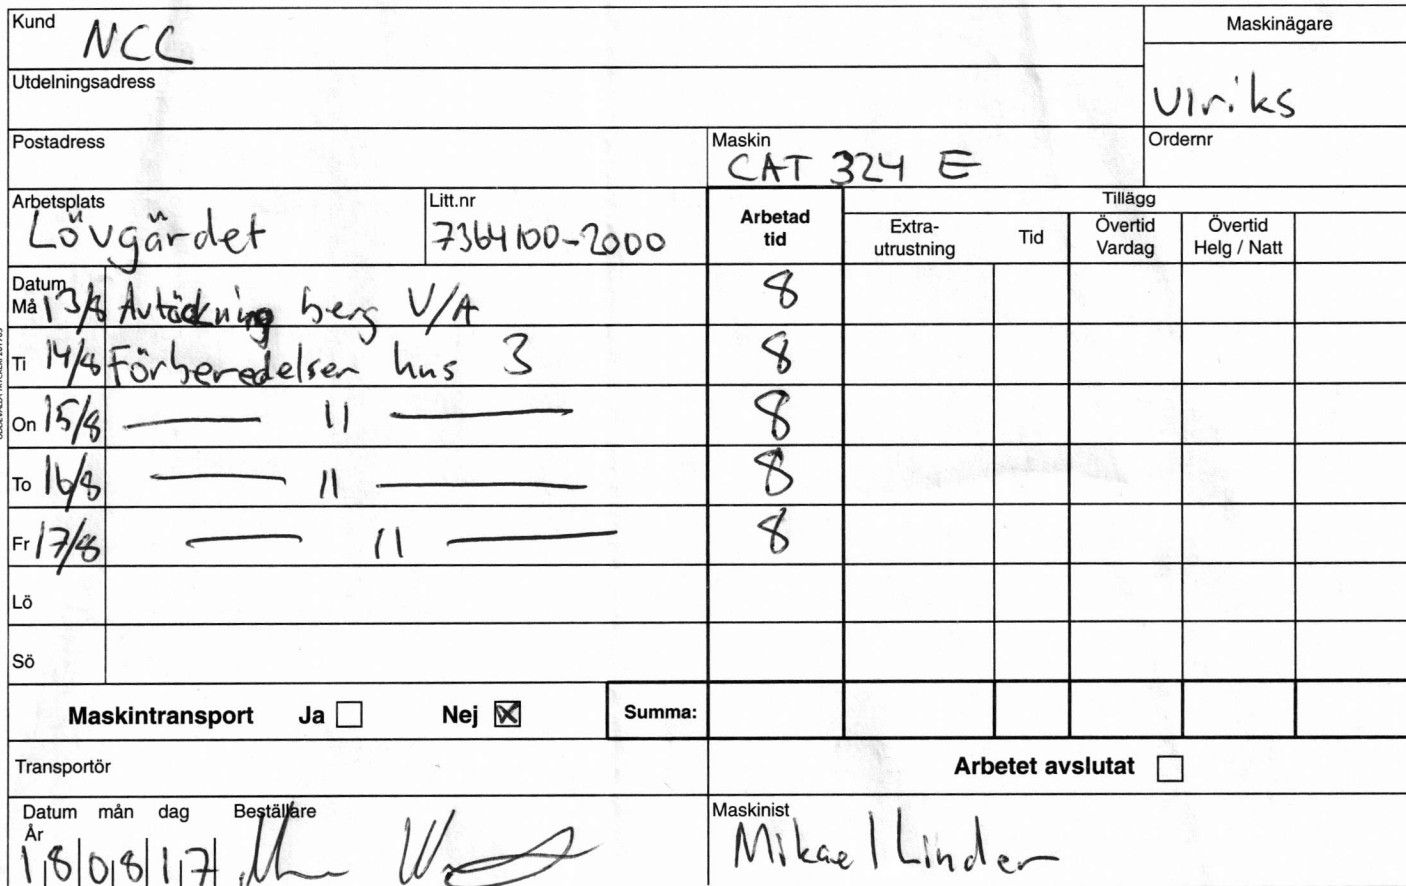 Kund NCC
Maskinägare
Utdelningsadress
Ulriks
Postadress
Maskin CAT 324 E
Ordernr
Arbetsplats Lövgärdet
Litt.nr 7364100-2000
Arbetad tid
Tillägg
Extra-utrustning
Tid
Övertid Vardag
Övertid Helg / Natt
Datum
Må 13/8 Avtäckning berg V/A 8
Ti 14/8 Förberedelser hus 3 8
On 15/8 — 11 — 8
To 16/8 — 11 — 8
Fr 17/8 — 11 — 8
Lö
Sö
Maskintransport Ja Nej X Summa:
Transportör
Arbetet avslutat
Datum mån dag Beställare
År
18 08 17
Maskinist
Mikael Linder